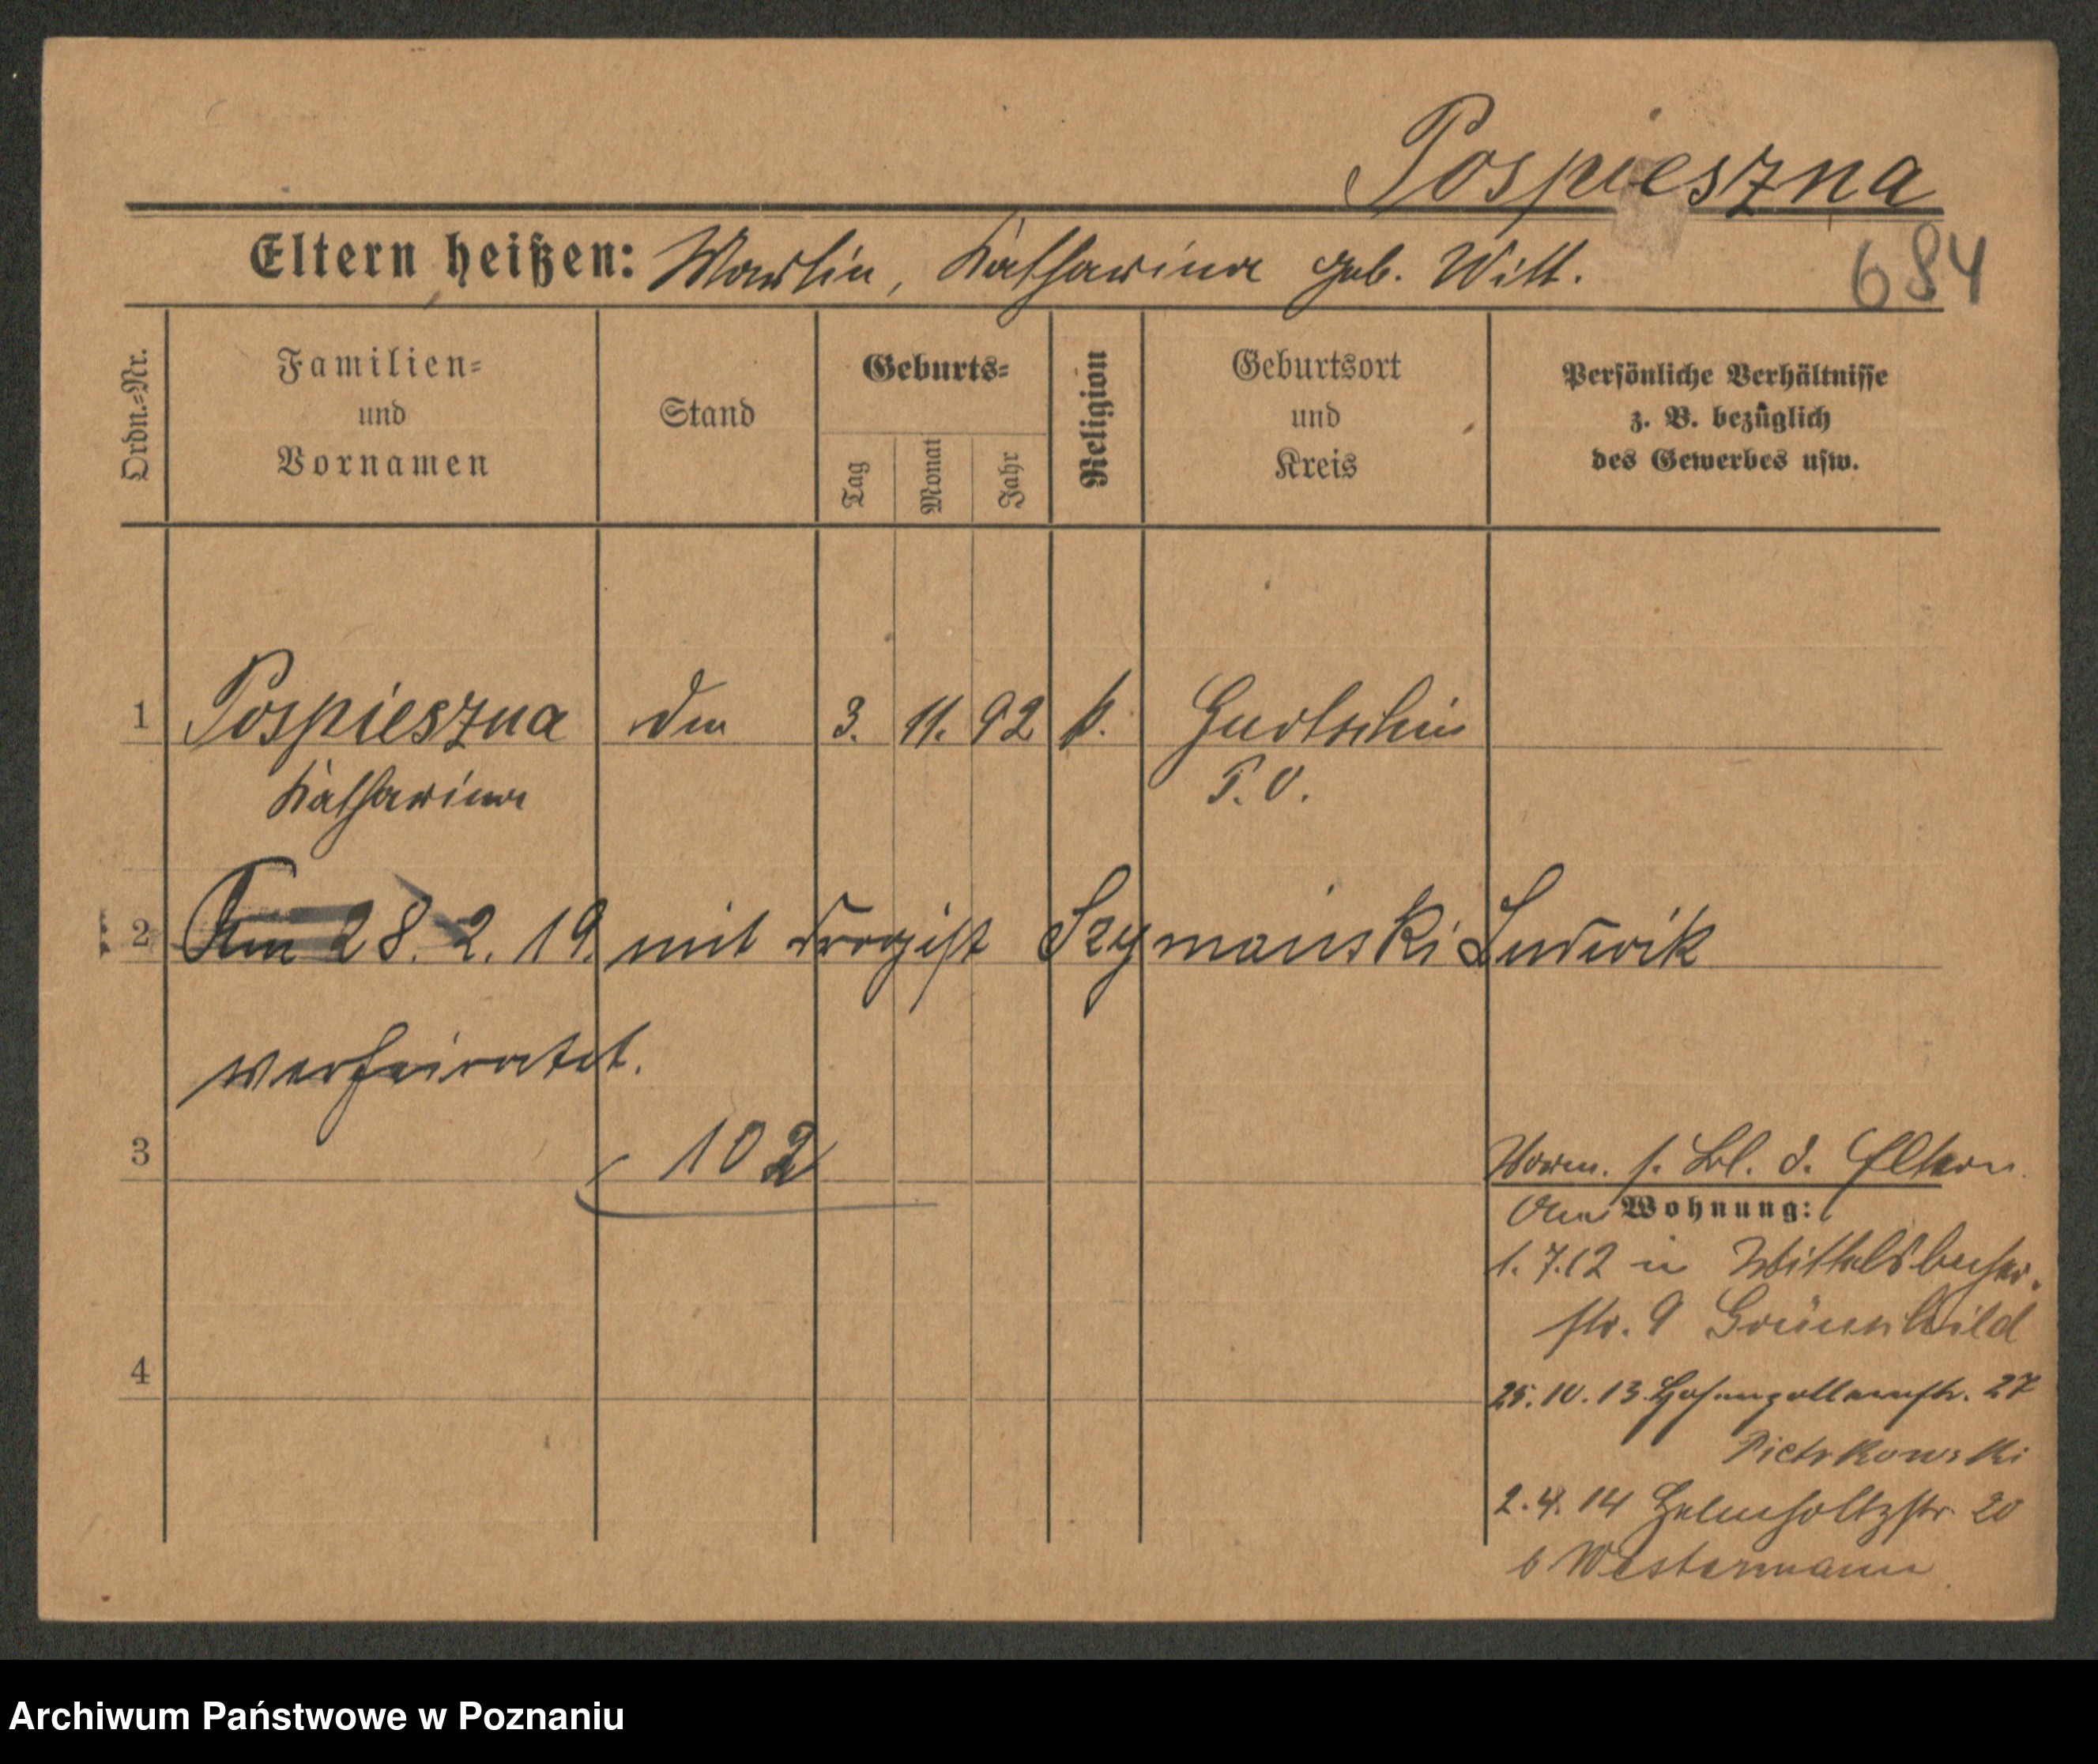 Pospieszna
Eltern heißen: Martin, Katharina geb. Witt.
684
Ordn.-Nr.
Familien- und Vornamen
Stand
Geburts-
Tag
Monat
Jahr
Religion
Geburtsort und Kreis
Persönliche Verhältnisse z. B. bezüglich des Gewerbes usw.
1 Pospieszna 3. 11. 92 k. Gurtschin
Katharina P. O.
2 Am 28. 2. 19. mit Drogist Szymański Ludwik
verheiratet.
3 102
Vorm. s. Bl. d. Eltern
Wohnung:
1. 7. 12 in Wittelsbacher-
str. 9
4
25. 10. 13 Hohenzollernstr. 27
Pietrkowski
2. 4. 14 Helmholtzstr. 20
b Westermann
Archiwum Państwowe w Poznaniu